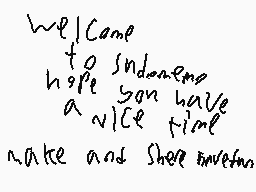 welcome
to
hope you have
a nice time
make and shere